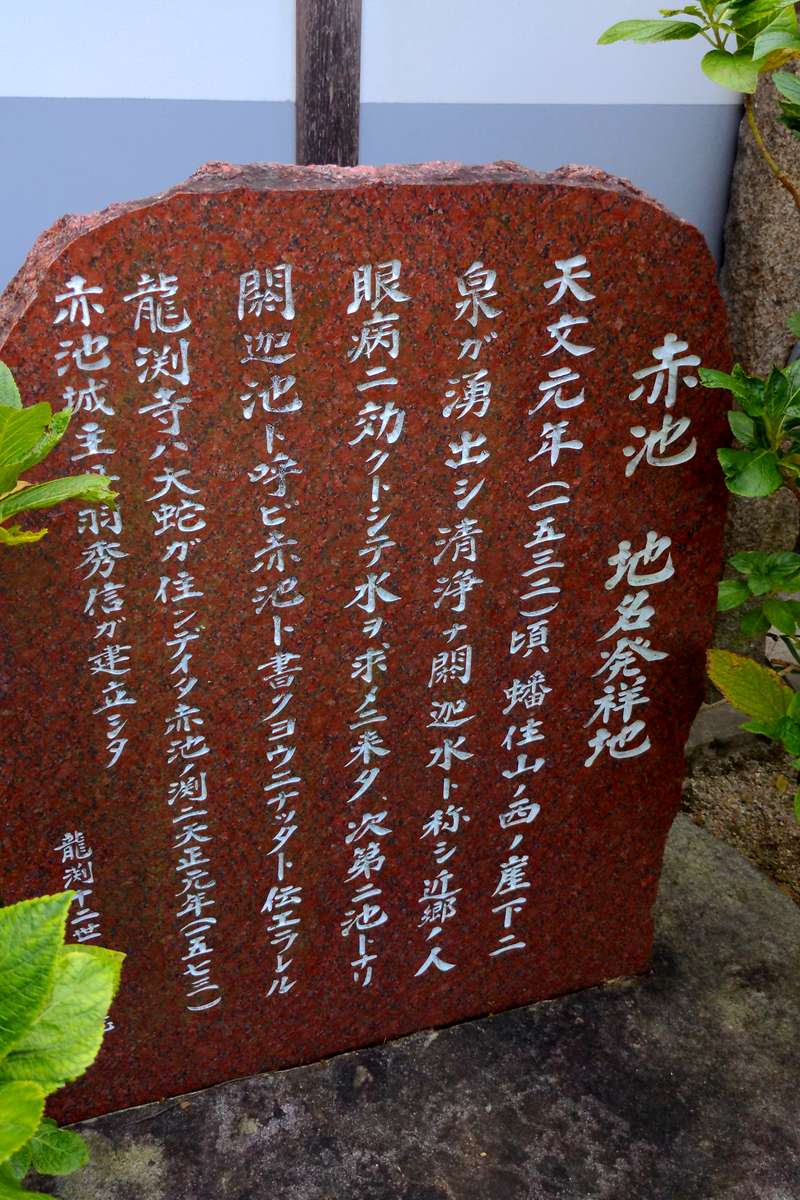 赤池 地名発祥地
天文元年(一五三二)頃蟠住山ノ西ノ崖下ニ
泉が湧出シ清浄ナ閼迦水ト称シ近郷ノ人
眼病ニ効クトシテ水ヲ求メニ来タ、次第ニ池トナリ
閼迦池ト呼ビ赤池ト書クヨウニナッタト伝エラレル
龍渕寺ハ大蛇ガ住ンデイタ赤池ノ渕ニ天正元年(一五七三)
赤池城主 羽秀信ガ建立シタ
龍渕十二世